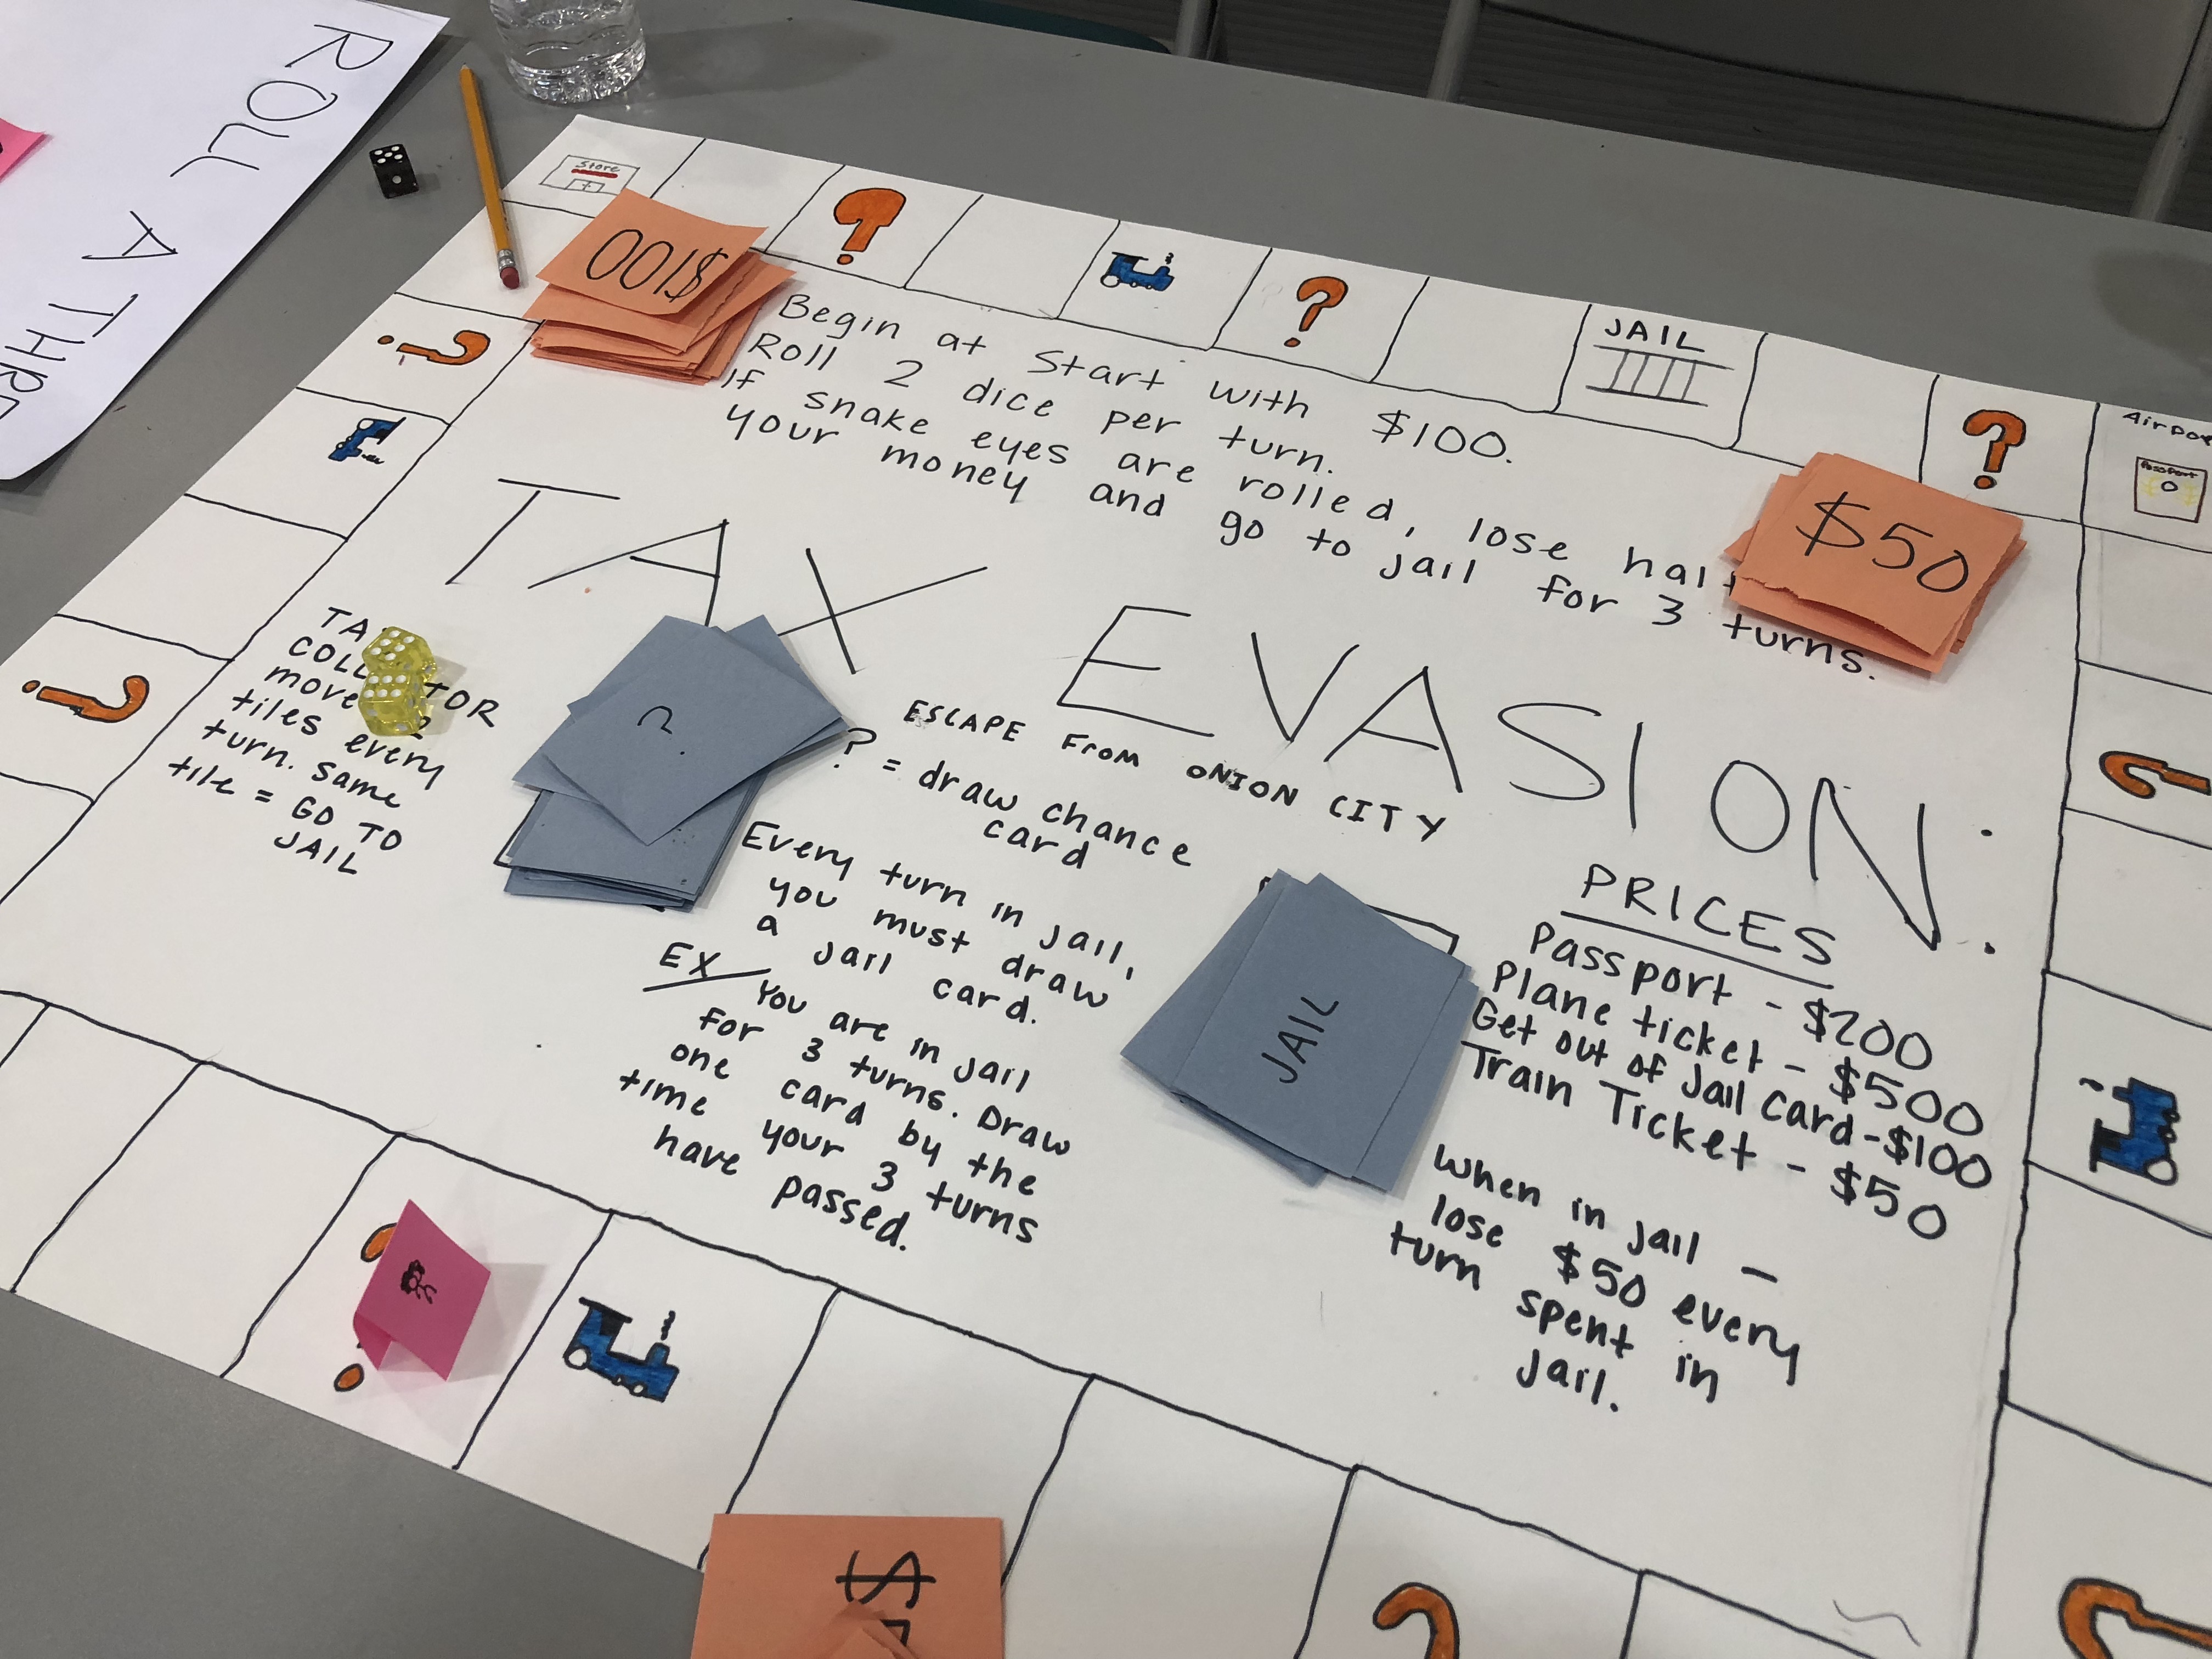 ROLL A THR
Store
$100
?
?
JAIL
?
Airpo
Passport
$50
Begin at Start with $100.
Roll 2 dice per turn.
If snake eyes are rolled, lose half
your money and go to jail for 3 turns.
TAX EVASION:
ESCAPE FROM ONION CITY
? = draw chance
card
TA
COLL TOR
move 2
tiles every
turn. same
tile = GO TO
JAIL
?
?
?
Every turn in jail,
you must draw
a jail card.
EX
You are in jail
for 3 turns. Draw
one card by the
time your 3 turns
have passed.
JAIL
PRICES
Passport - $200
Plane ticket - $500
Get out of Jail card - $100
Train Ticket - $50
When in jail -
lose $50 every
turn spent in
jail.
?
?
$
?
?